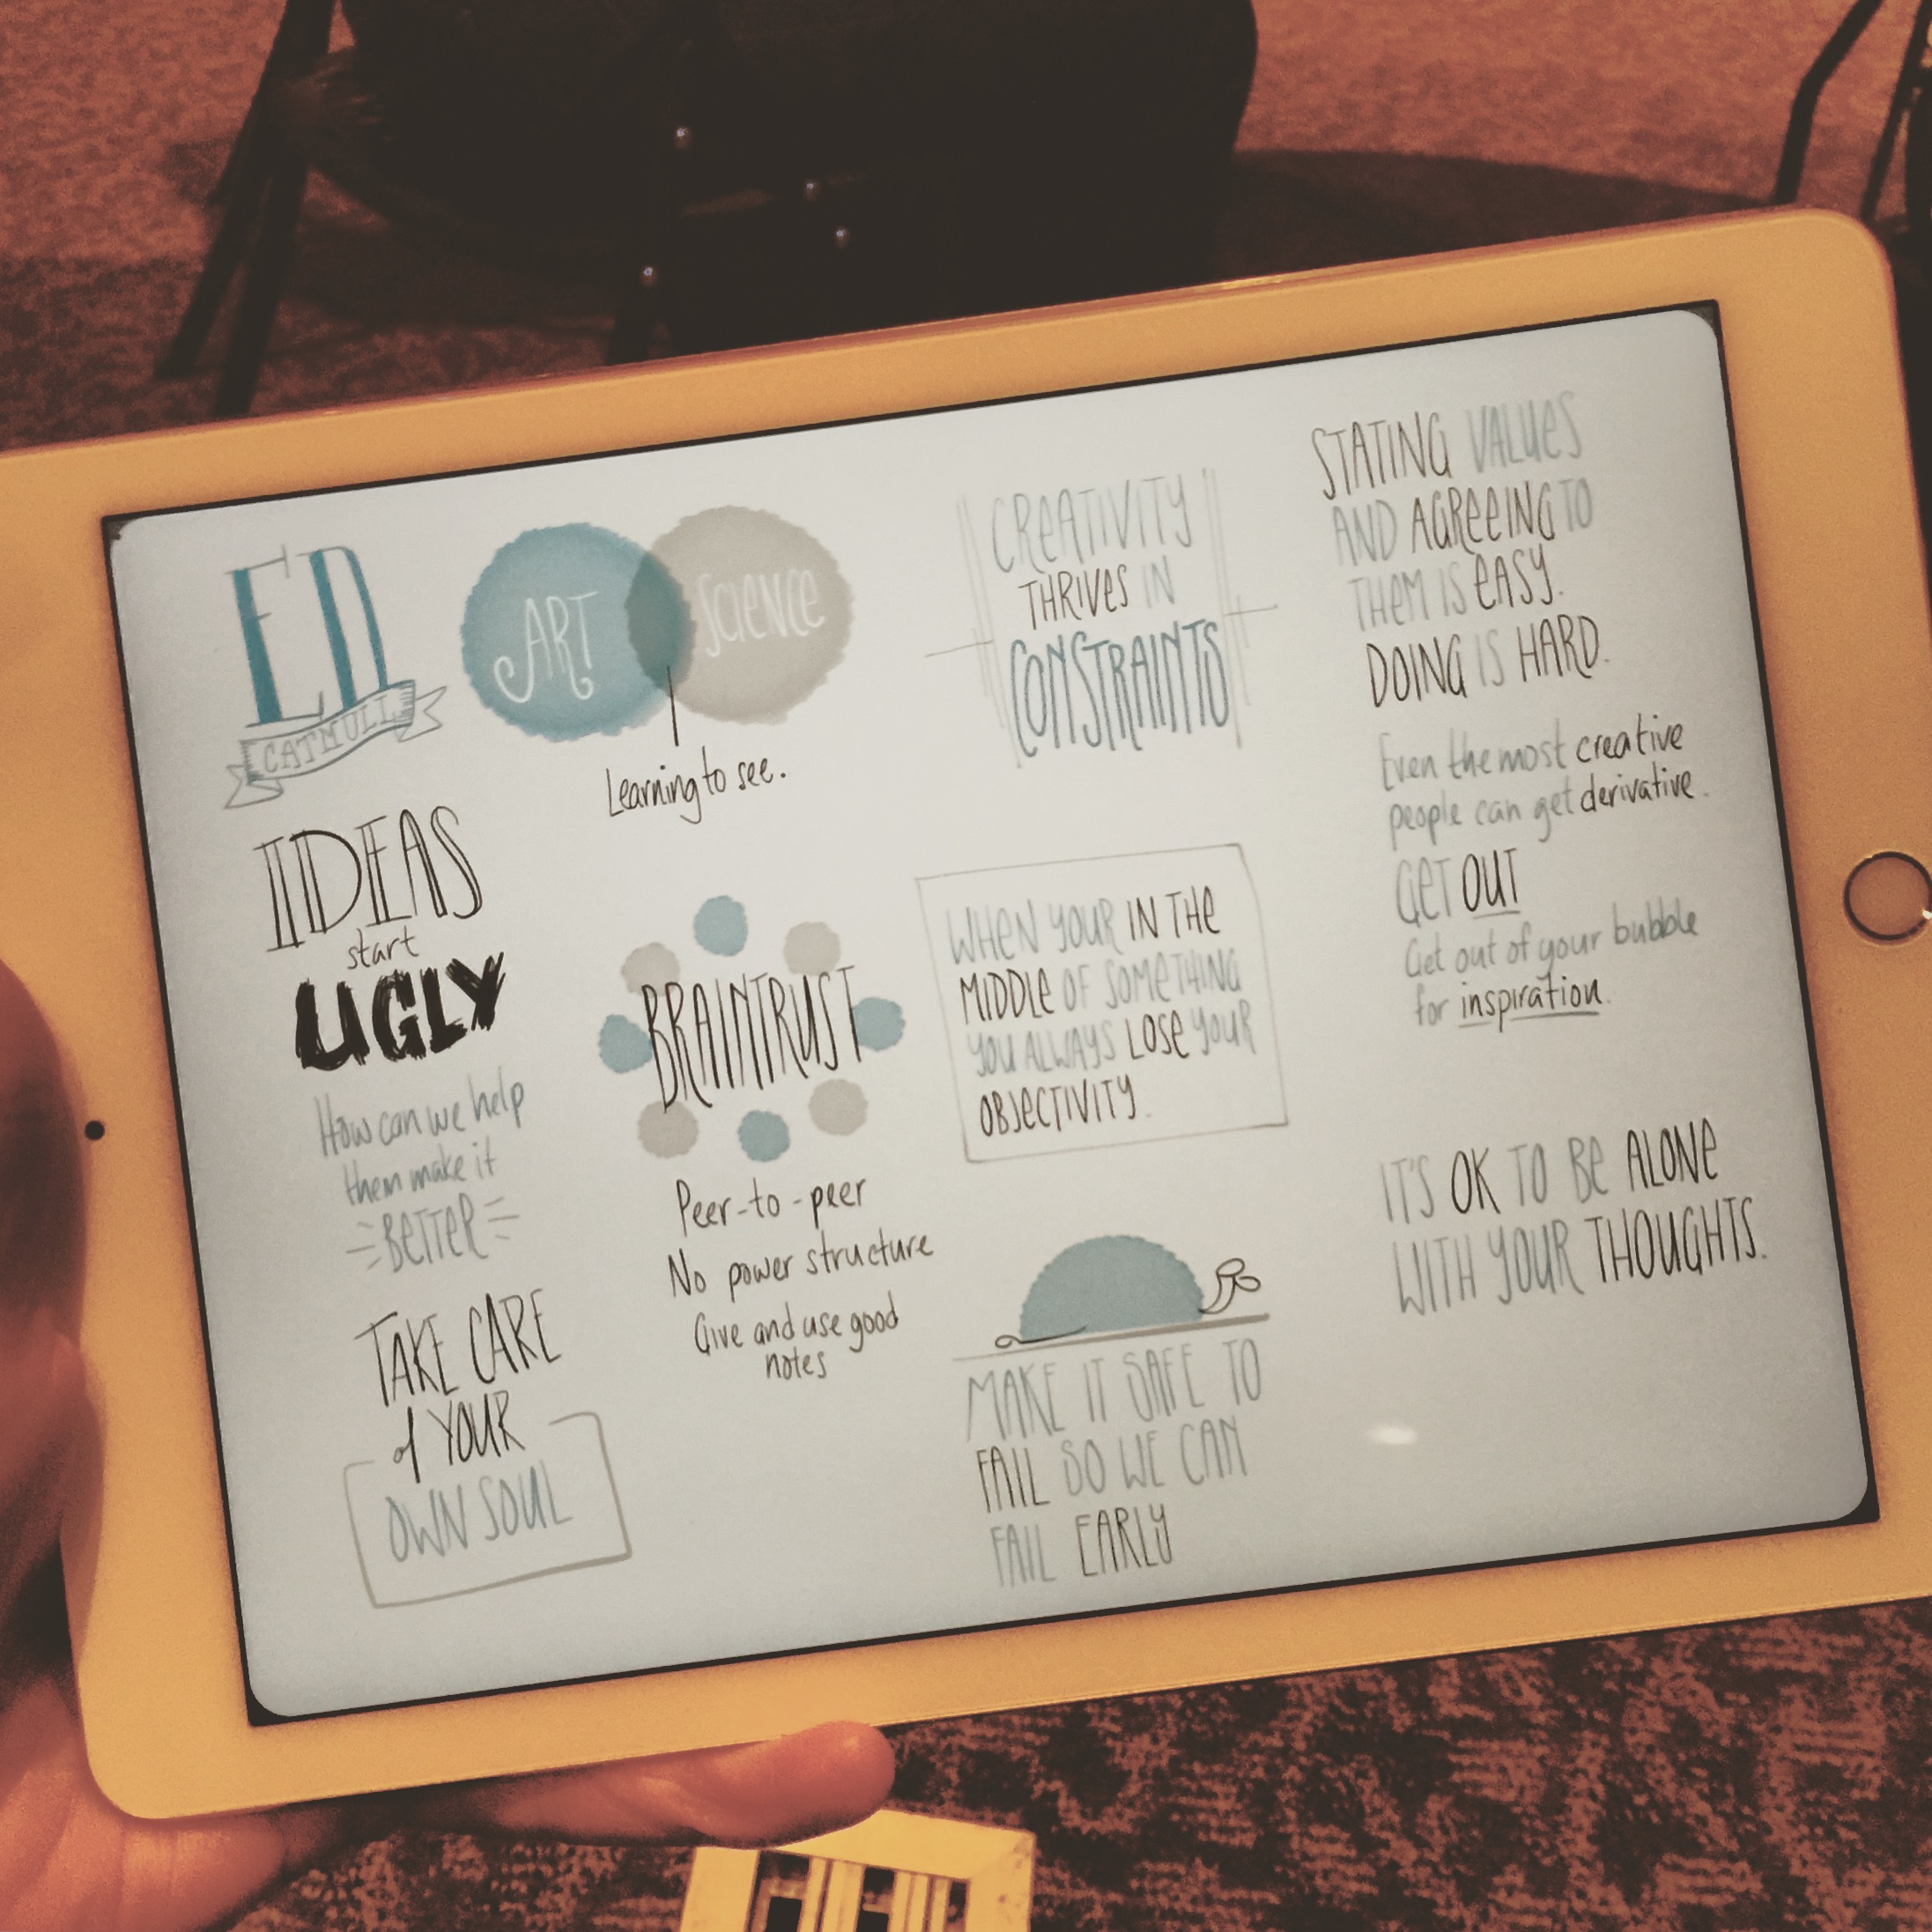 ED
CATMULL
ART
SCIENCE
Learning to see.
IDEAS
start
UGLY
How can we help
them make it
BETTER
TAKE CARE
of YOUR
OWN SOUL
BRAINTRUST
Peer-to-peer
No power structure
Give and use good
notes
CREATIVITY
THRIVES IN
CONSTRAINTS
WHEN YOUR IN THE
MIDDLE OF SOMETHING
YOU ALWAYS LOSE YOUR
OBJECTIVITY.
MAKE IT SAFE TO
FAIL SO WE CAN
FAIL EARLY
STATING VALUES
AND AGREEING TO
THEM IS EASY.
DOING IS HARD.
Even the most creative
people can get derivative.
GET OUT
Get out of your bubble
for inspiration.
IT'S OK TO BE ALONE
WITH YOUR THOUGHTS.